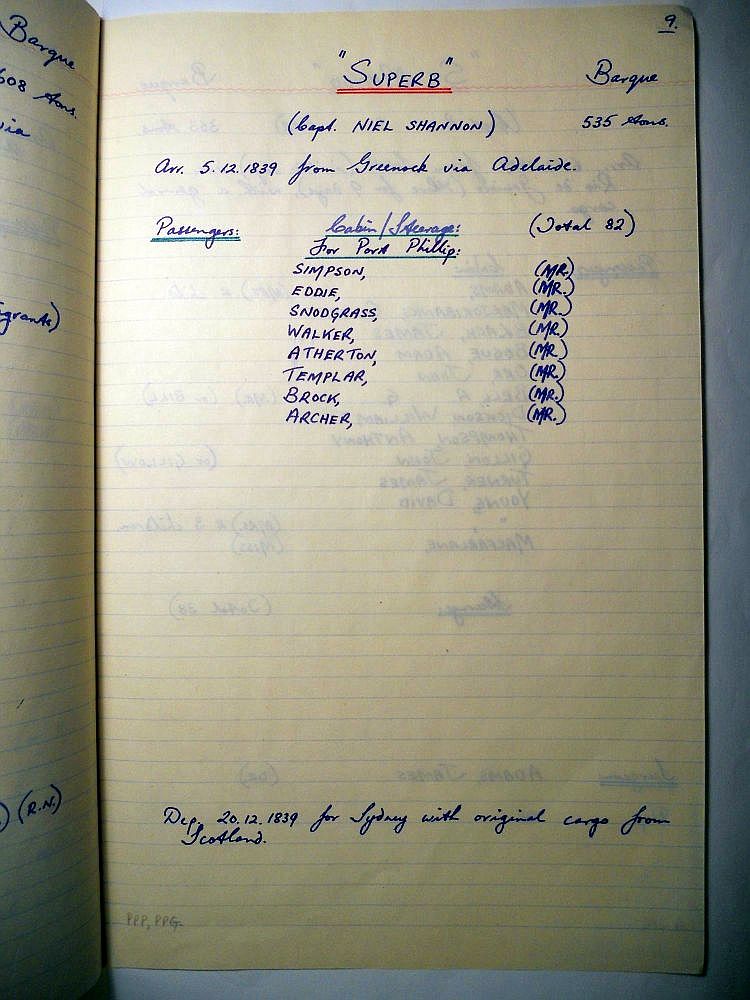 9.
"SUPERB" Barque
(Capt. NIEL SHANNON) 535 tons.
Arr. 5.12.1839 from Greenock via Adelaide.
Passengers: Cabin/Steerage: (Total 82)
For Port Phillip:
SIMPSON, (MR.)
EDDIE, (MR.)
SNODGRASS, (MR.)
WALKER, (MR.)
ATHERTON, (MR.)
TEMPLAR, (MR.)
BROCK, (MR.)
ARCHER, (MR.)
Dep. 20.12.1839 for Sydney with original cargo from
Scotland.
PPP, PPG.
Barque
608 tons.
via
(R.N.)